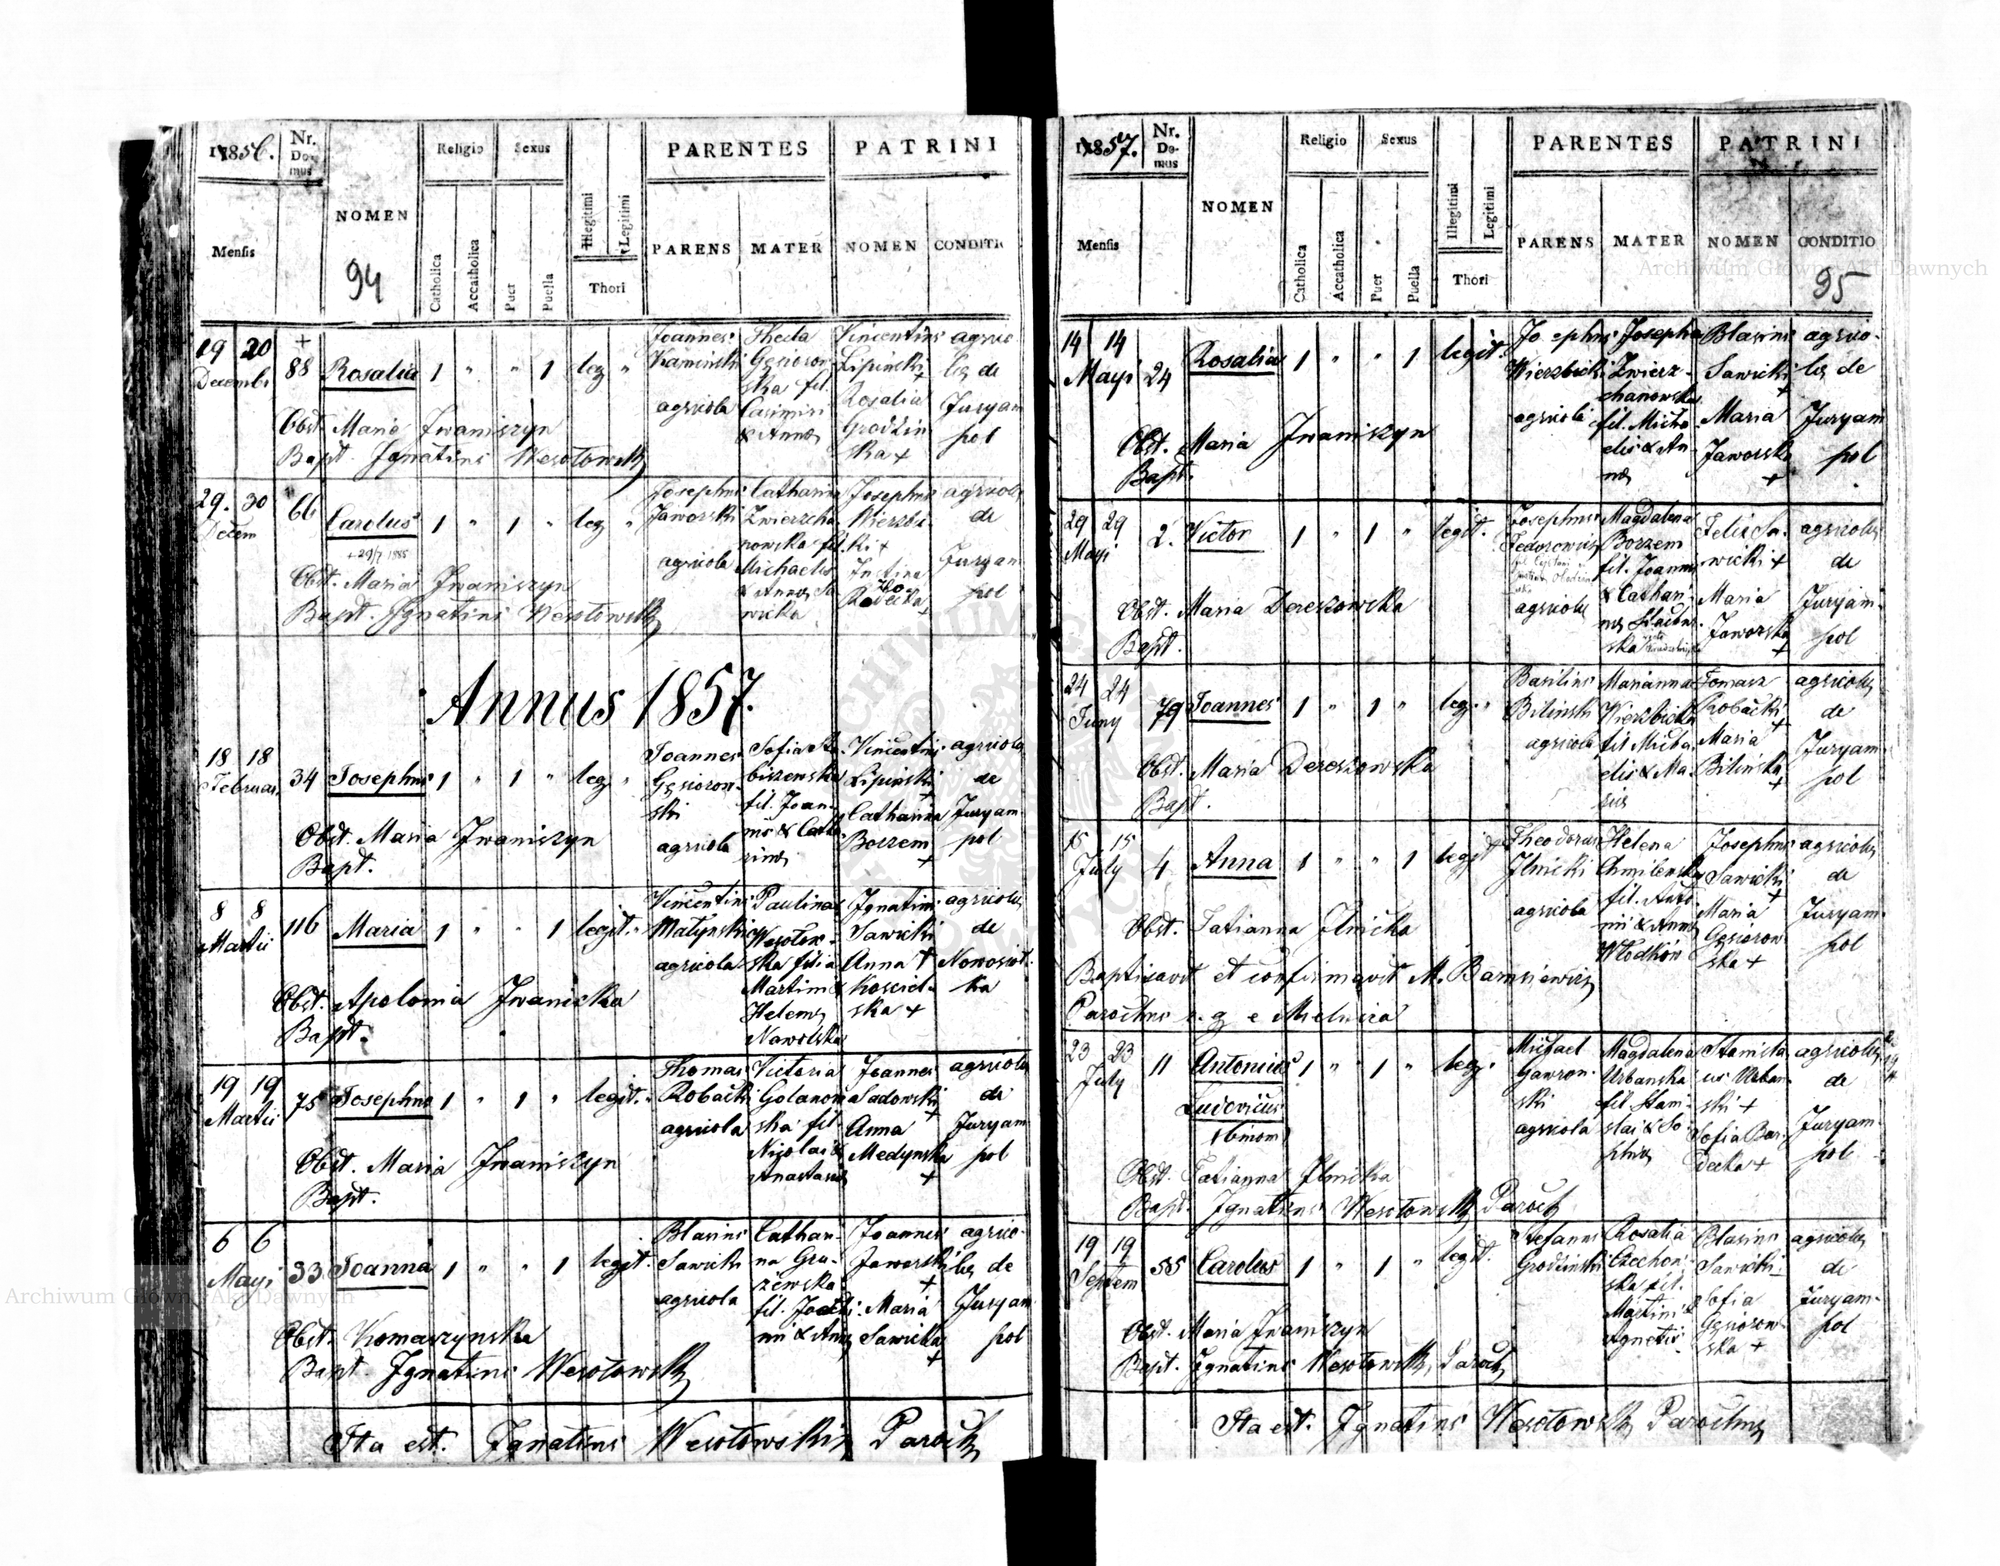 1856.
Nr. Domus
NOMEN
Religio
Sexus
PARENTES
PATRINI
Mensis
Catholica
Accatholica
Puer
Puella
Illegitimi
Legitimi
Thori
PARENS
MATER
NOMEN
CONDITIO
94
19 20 Decembr
+
88
Rosalia
1 " " 1 leg "
Joannes
Kaminski
agricola
Thecla
Gąsiorow
ska fil.
Casimiri
& Annæ
Vincentius
Lipinski +
Rosalia
Grodzin
ska +
agrico
læ de
Juryam
pol
Obst. Maria Iwaniszyn
Bapt. Ignatius Wesołowski
29. 30
Decem
66
Carolus
1 " 1 " leg "
Josephus
Jaworski
agricola
Catharina
Zwierzcha
nowska fil.
Michaelis
& Annæ Sa
wicka
Josephus
Wierzbi
cki +
Justina
agricolæ
de
Juryam
pol
Obst. Maria Iwaniszyn
Bapt. Ignatius Wesołowski
Annus 1857.
18 18
Februar.
34
Josephus
1 " 1 " leg "
Joannes
Gąsiorow
ski
agricola
fil. Joan
nis & Catha
rinæ
Vincentius
Lipinski +
Catharina
Borzem +
agricolæ
de
Juryam
pol
Obst. Maria Iwaniszyn
Bapt.
8 8
Martii
116
Maria
1 " " 1 legit. "
Vincentius
Matynski
agricola
Paulina
Wesołow
ska filia
Martini &
Helenæ
Nawolska
Ignatius
Sawicki
Anna +
Kosciel
ska +
agricolæ
de
Nowosiół
ka
Obst. Apolonia Iwanicka
Bapt.
19 19
Martii
75
Josephus
1 " 1 " legit. "
Thomas
Robacki
agricola
Victoria
Golanow
ska fil
Nicolai &
Anastasiæ
Joannes
Sadowski +
Anna
Medynska +
agricolæ
de
Juryam
pol
Obst. Maria Iwaniszyn
Bapt.
6 6
Mayi
33
Joanna
1 " " 1 legit.
Blasius
Sawicki
agricola
Cathari
na Gru
żewska
& Annæ
Joannes
Jaworski +
Maria
Sawicka +
agrico
læ de
Juryam
pol
Obst. Komaszynska
Bapt. Ignatius Wesołowski
Ita est. Ignatius Wesołowski Paroch
1857.
Nr. Domus
NOMEN
Religio
Sexus
PARENTES
PATRINI
Mensis
Catholica
Accatholica
Puer
Puella
Illegitimi
Legitimi
Thori
PARENS
MATER
NOMEN
CONDITIO
95
14 14
Mayi
24
Rosalia
1 " " 1 legit.
Josephus
Wierzbicki
agricola
Josepha
Zwierz
chanowska
fil. Micha
elis & An
næ
Blasius
Sawicki +
Maria
Jaworska +
agrico
læ de
Juryam
pol
Obst. Maria Iwaniszyn
Bapt.
29 29
Mayi
2.
Victor
1 " 1 " legit.
Josephus
Fedorowicz
agricola
Magdalena
Borzem
fil. Joannis
& Cathari
næ
Felix Sa
wicki +
Maria
Jaworska +
agricolæ
de
Juryam
pol
Obst. Maria Dereszowska
Bapt.
24 24
Juny
79
Joannes
1 " 1 " leg. "
Basilius
Bilinski
agricola
Marianna
Wierzbicka
fil Micha
elis & Ma
riæ
Tomasz
Robacki +
Maria
Bilinska +
agricolæ
de
Juryam
pol
Obst. Maria Dereszowska
Bapt.
15 15
July
4
Anna
1 " " 1 legit
Theodorus
Ilnicki
agricola
Helena
Chmilenska
fil. Anto
nii & Annæ
Włodków
Josephus
Sawicki +
Maria
Gąsiorow
ska +
agricolæ
de
Juryam
pol
Obst. Tatianna Ilnicka
Baptisavit et confirmavit M. Barusiewicz
Parochus r. g. e Mielnica
23 23
July
11
Antonius
Ludovicus
1 " 1 " leg.
Michael
Gawron
ski
agricola
Magdalena
Urbanska
fil. Stanis
lai & So
phiæ
Stanisla
us Urban
ski +
Sofia Bar
decka +
agricolæ
de
Juryam
pol
Obst. Tatianna Ilnicka
Bapt. Ignatius Wesołowski Paroch
19 19
Septem
55
Carolus
1 " 1 " legit.
Stefanus
Grodzinski
Rosalia
Czechow
ska fil.
Martini &
Agnetis
Blasius
Sawicki
Sofia
Gąsiorow
ska +
agricolæ
de
Juryam
pol
Obst. Maria Iwaniszyn
Bapt. Ignatius Wesołowski, Paroch
Ita est. Ignatius Wesołowski Parochus
Archiwum Główne Akt Dawnych
Archiwum Główne Akt Dawnych